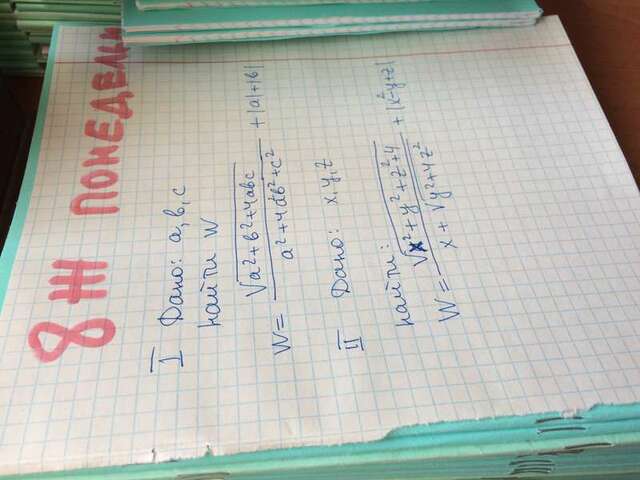 8Ж ПОНЕДЕЛЬН
I Дано: a, b, c
найти W
W = √(a² + b² + 4abc) / (a² + 4a²b² + c²) + |a| + |b|
II Дано: x, y, z
найти:
W = √(x² + y² + z² + 4) / (x + √(y² + 4z²)) + |x² - y + z|